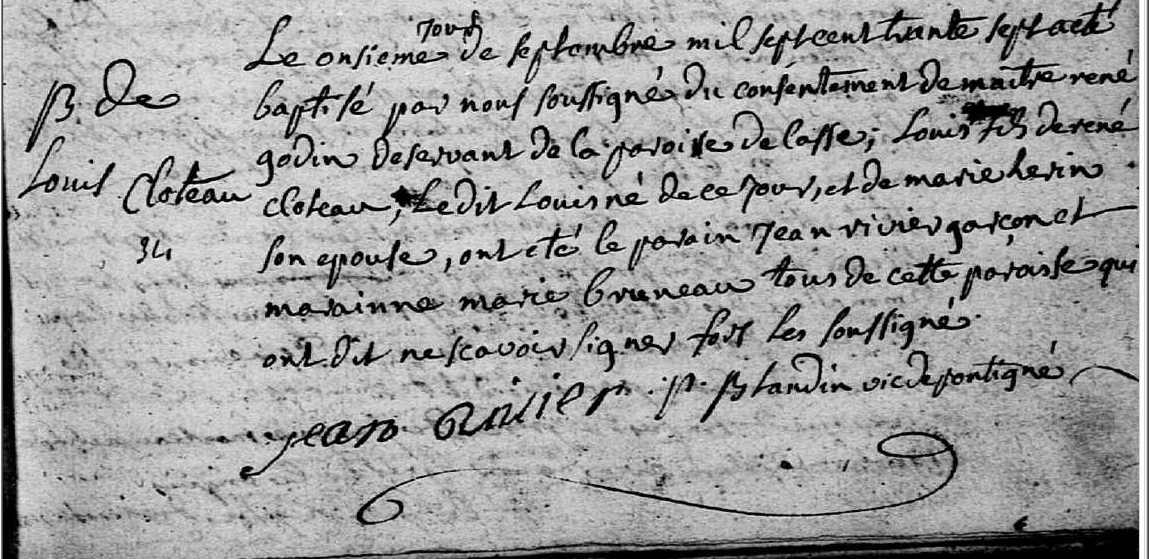 jour
Le onsieme de septembre mil sept cent trante sept a eté
B. de
baptisé par nous soussigné du consentement de maitre rené
godin deservant de la paroisse de lasse; Louis fils de rené
Louis Cloteau
cloteau, Ledit Louis né de ce jour, et de marie herin
34
son epouse, ont eté le parain Jean rivier garçon et
marainne marie bruneau tous de cette paroisse qui
ont dit ne scavoir signer fors les soussigné.
jean rivier p. Blandin vic de pontigné